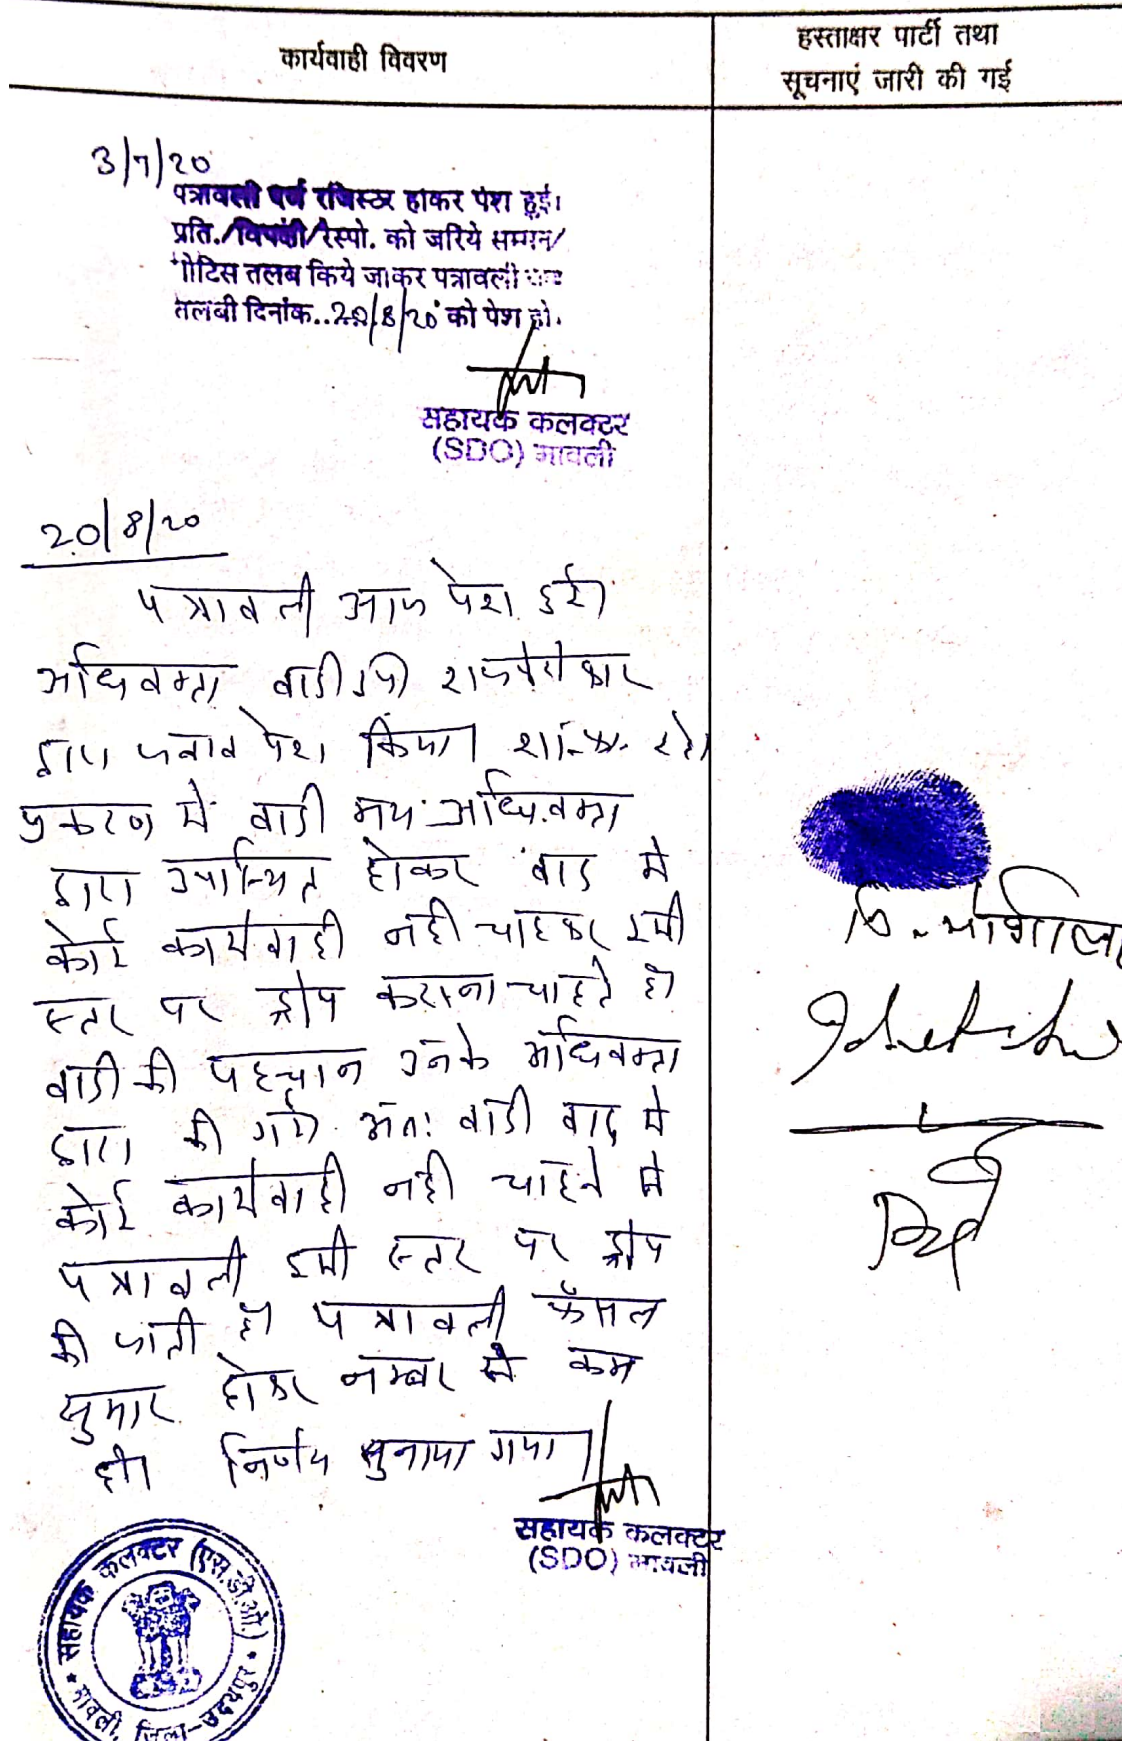 कार्यवाही विवरण
हस्ताक्षर पार्टी तथा
सूचनाएं जारी की गई
3/7/20
पत्रावली दर्ज रजिस्टर होकर पेश हुई।
प्रति./विपक्षी/रेस्पो. को जरिये सम्मन/
नोटिस तलब किये जाकर पत्रावली वास्ते
तलबी दिनांक..20/8/20 को पेश हो.
सहायक कलक्टर
(SDO) मावली
20/8/20
पत्रावली आज पेश हुई।
अधिवक्ता वादी उप। राजपेरोकार
द्वारा जवाब पेश किया। शा.फा. रहे।
प्रकरण में वादी मय अधिवक्ता
द्वारा उपस्थित होकर वाद मे
कोई कार्यवाही नही चाहकर इसी
स्तर पर ड्रोप कराना चाहते है।
वादी की पहचान उनके अधिवक्ता
द्वारा की गई। अतः वादी वाद मे
कोई कार्यवाही नही चाहने से
पत्रावली इसी स्तर पर ड्रोप
की जाती है। पत्रावली फैसल
सुमार होकर नम्बर से कम
हो। निर्णय सुनाया गया।
सहायक कलक्टर
(SDO) मावली
सहायक कलक्टर (एस.डी.ओ.)
मावली, जिला-उदयपुर